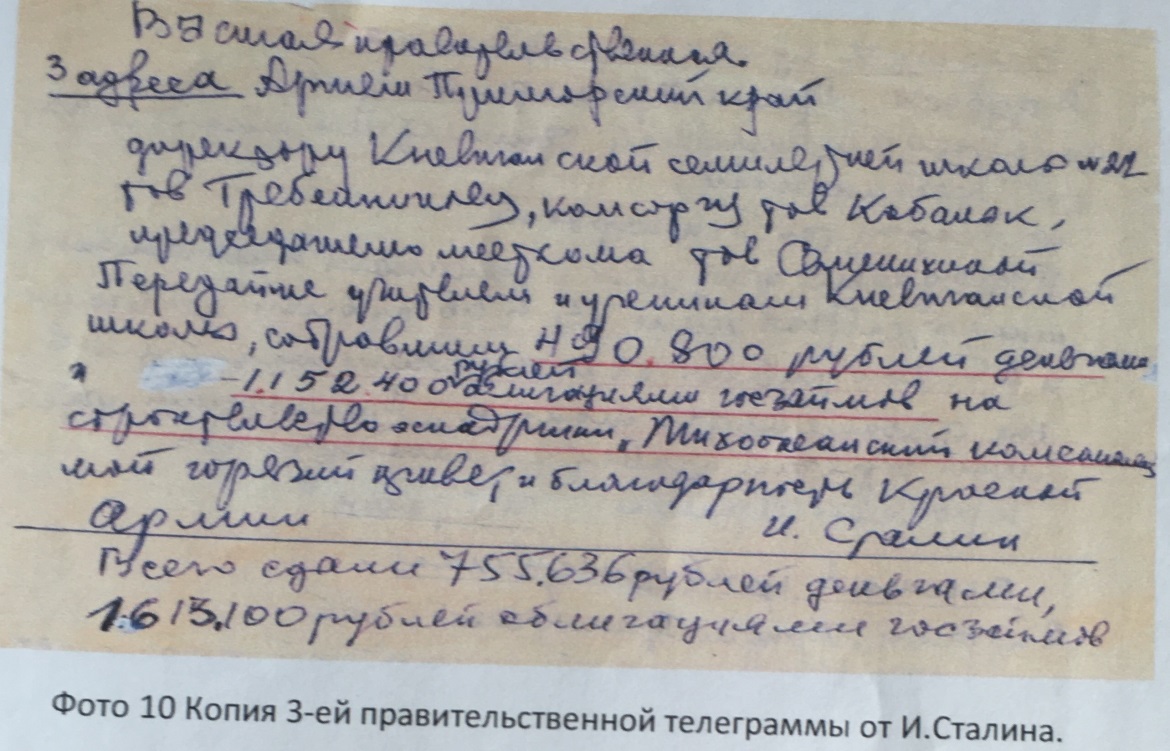 Высшая правительственная.
3 адреса Артем Приморский край
директору Кневичанской семилетней школы №22
тов , комсоргу тов Кабалок,
председателю месткома тов
Передайте учителям и ученикам Кневичанской
школы, собравшим 490.800 рублей деньгами
и 1.152.400 рублей облигациями госзаймов на
строительство эскадрильи „Тихоокеанский комсомолец
мой горячий привет и благодарность Красной
Армии И. Сталин
Всего сдали 755.636 рублей деньгами,
1.613.100 рублей облигациями госзаймов
Фото 10 Копия 3-ей правительственной телеграммы от И.Сталина.